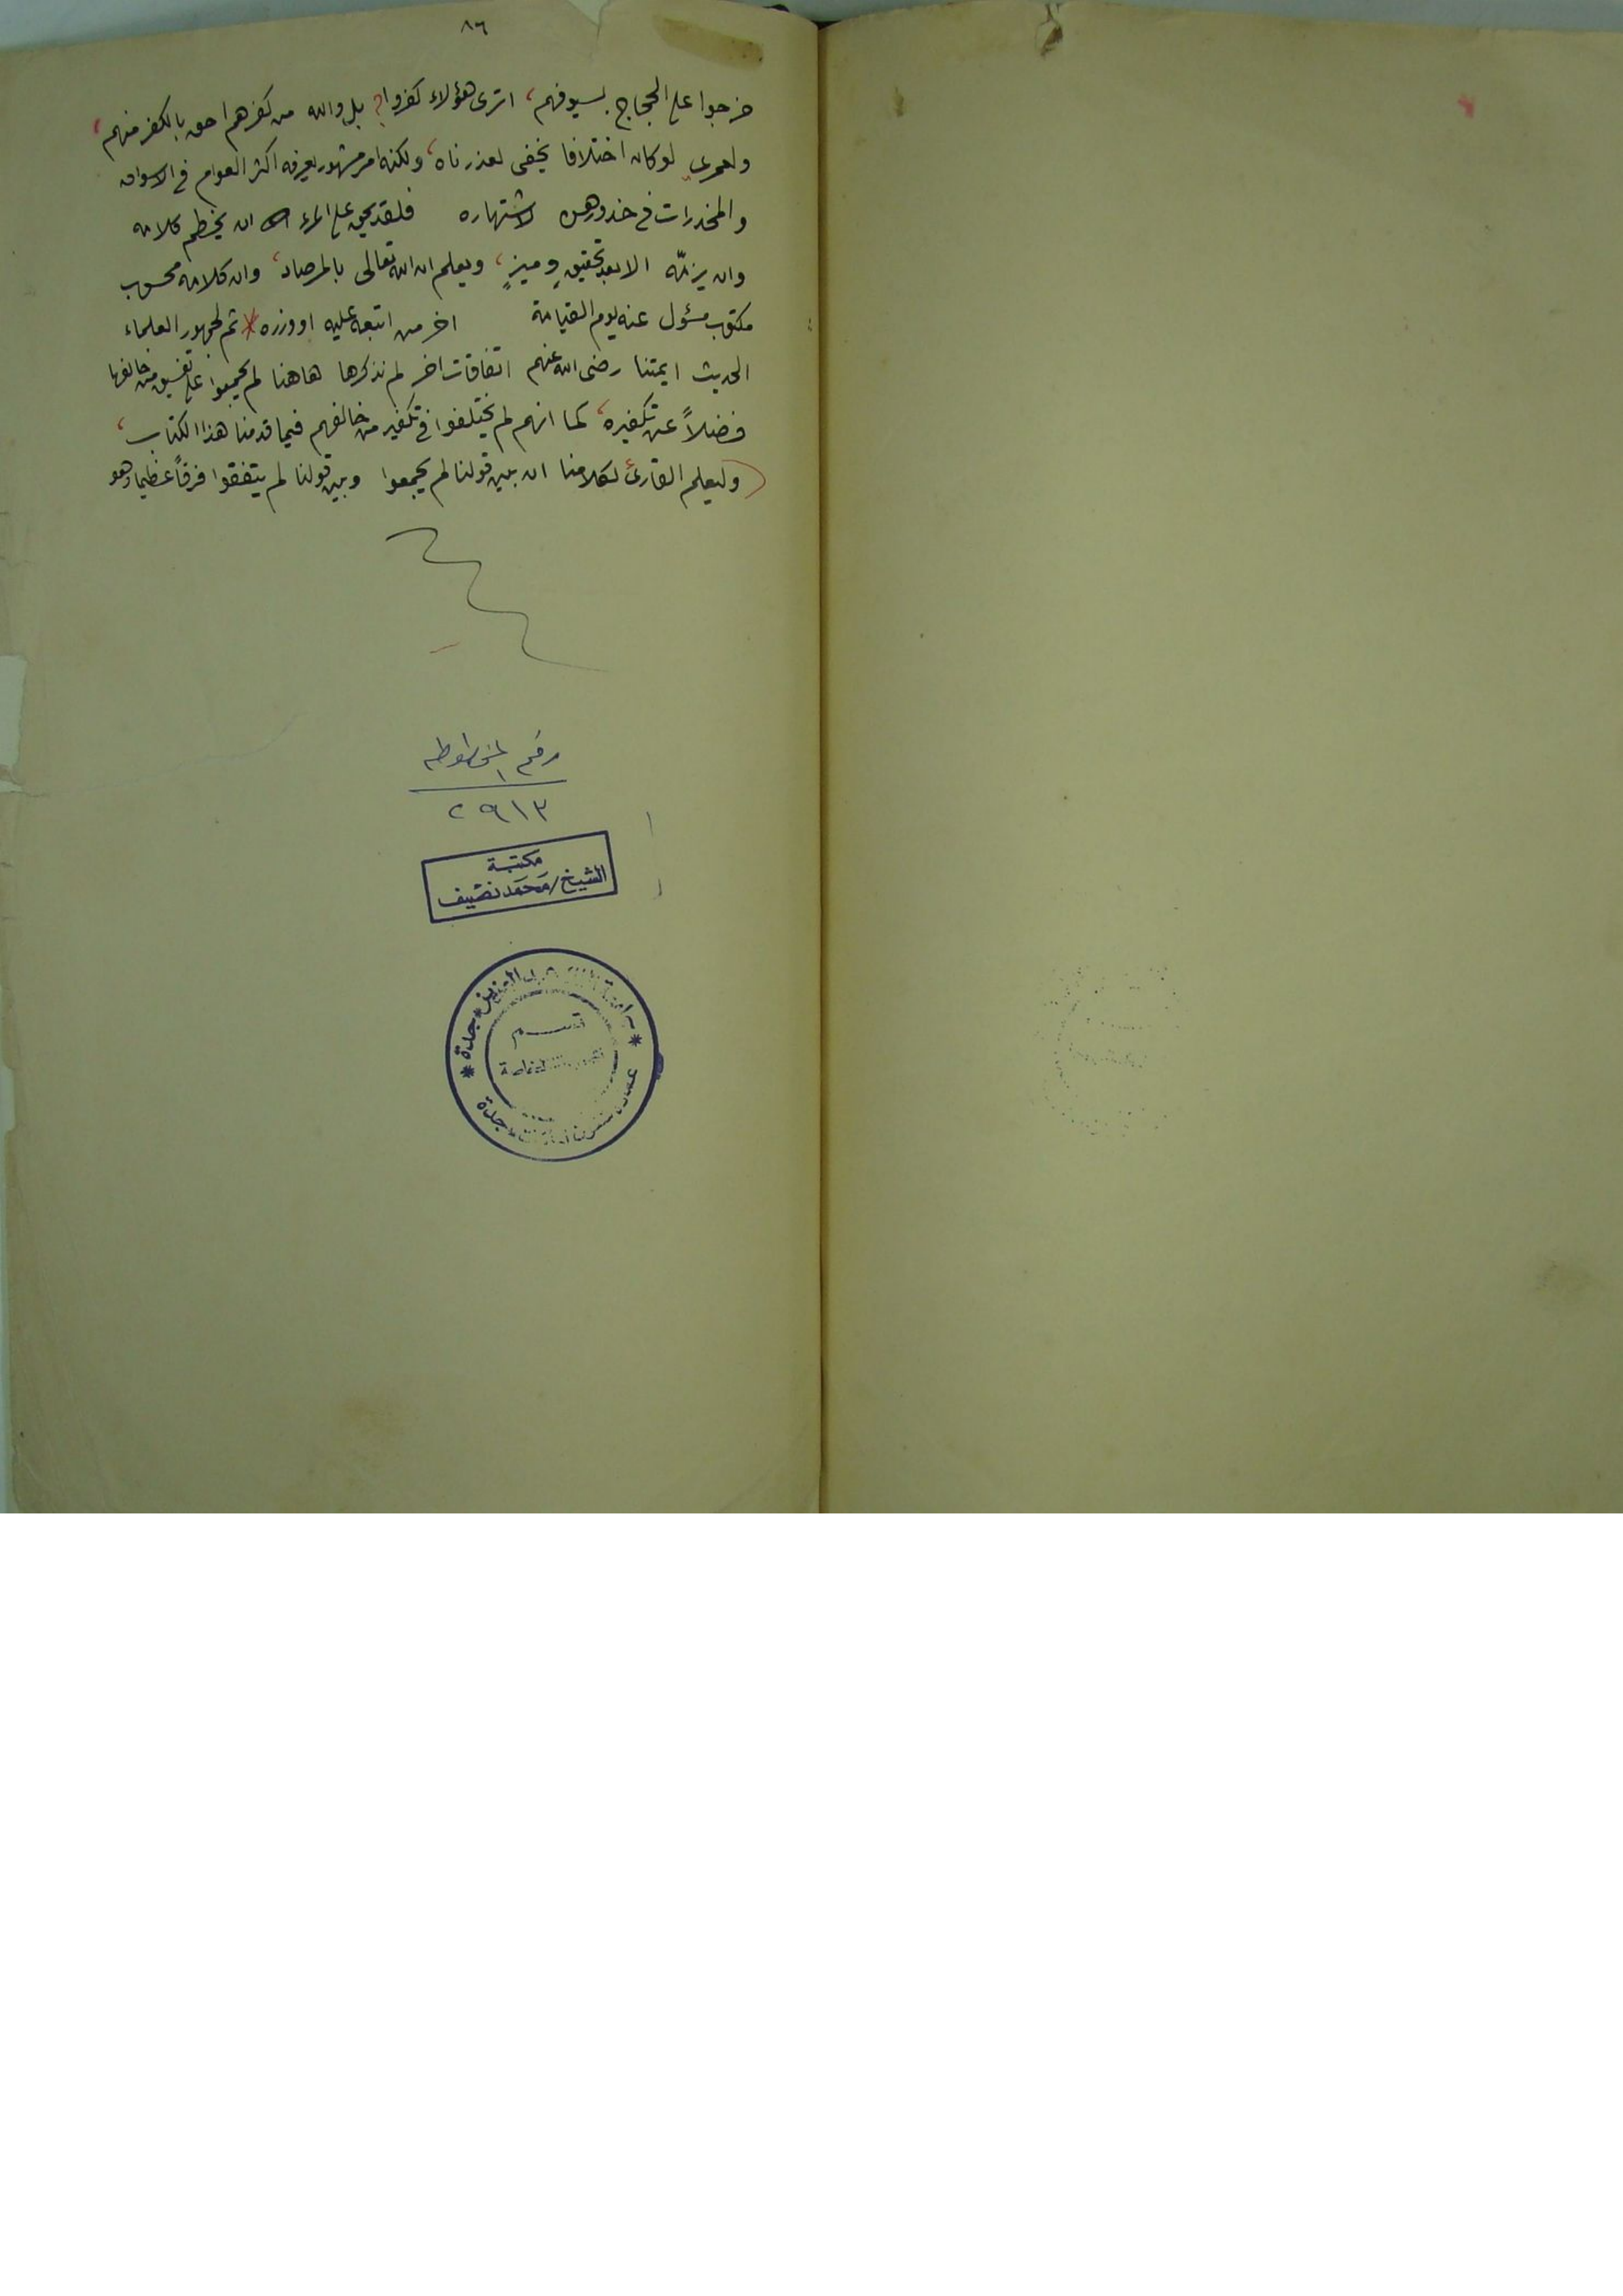 ٨٦
خرجوا على الحجاج بسيوفهم، اترى هؤلاء كفروا؟ بل والله من كفرهم احق بالكفر منهم،
ولعمرى لو كان اختلافا يخفى لعذرناه، ولكنه امر مشهور يعرفه اكثر العوام فى الاسواق
والمخدرات فى خدورهن لاشتهاره فلقد يحق على المرء ان يخطم كلامه
وان يزمّه الا بعد تحقيق وميز، ويعلم ان الله تعالى بالمرصاد، وان كلامه محسوب
مكتوب مسئول عنه يوم القيامة اخر من اتبعه عليه او وزره * ثم لجمهور العلماء
الحديث ايمتنا رضى الله عنهم اتفاقات اخر لم نذكرها هاهنا لم يجمعوا على تفسيق من خالفها
فضلاً عن تكفيره، كما انهم لم يختلفوا فى تكفير من خالفهم فيما قدمنا هذا الكتاب،
(وليعلم القارئ لكلامنا ان بين قولنا لم يجمعوا وبين قولنا لم يتفقوا فرقاً عظيما وهو
رقم المخطوطه
٢٩١٣
مكتبة
الشيخ/محمد نصيف
عبد العزيز * جدة *
قسم
جدة